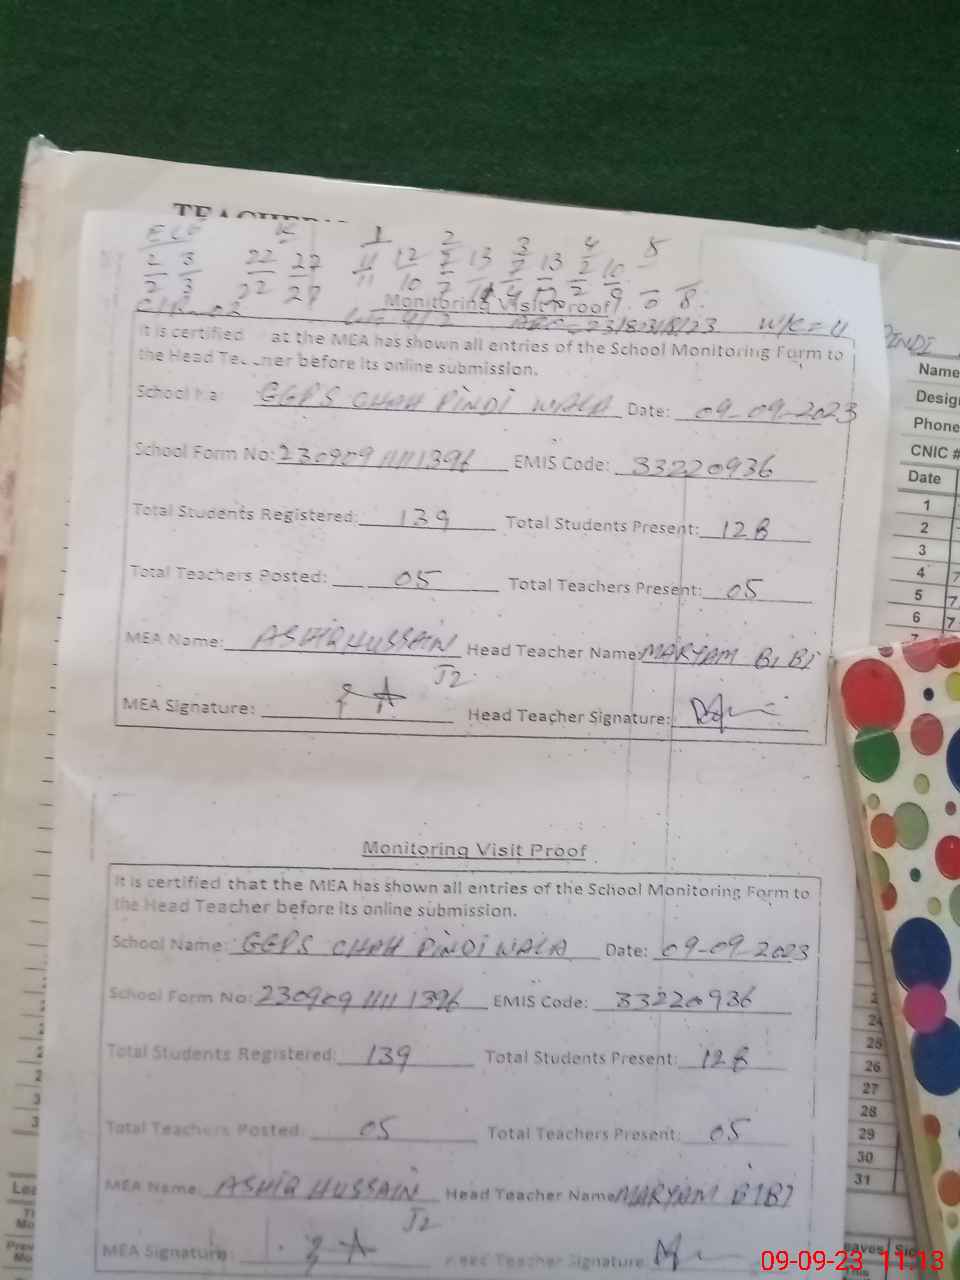 ECE K 1 2 3 4 5
2 3 22 27 11 12 13 13 10
2 3 22 27 11 10 9 0 8
Monitoring Visit Proof
23/8 23/8/23 W/C = 4
It is certified at the MEA has shown all entries of the School Monitoring Form to
the Head Te ner before its online submission.
School Na GGPS CHAH PINDI WALA Date: 09-09-2023
School Form No: 230909 11111396 EMIS Code: 33220936
Total Students Registered: 139 Total Students Present: 128
Total Teachers Posted: 05 Total Teachers Present: 05
MEA Name: ASHIQ HUSSAIN Head Teacher Name MARYAM BIBI
J2
MEA Signature: Head Teacher Signature:
Monitoring Visit Proof
It is certified that the MEA has shown all entries of the School Monitoring Form to
the Head Teacher before its online submission.
School Name: GGPS CHAH PINDI WALA Date: 09-09-2023
School Form No: 230909 11111396 EMIS Code: 33220936
Total Students Registered: 139 Total Students Present: 128
Total Teachers Posted: 05 Total Teachers Present: 05
MEA Name: ASHIQ HUSSAIN Head Teacher Name MARYAM BIBI
J2
MEA Signature: Head Teacher Signature
PINDI
Name
Phone
CNIC #
Date
1
2
3
4 7
5 7
6 7
24
25
26
27
28
29
30
31
09-09-23 11:13